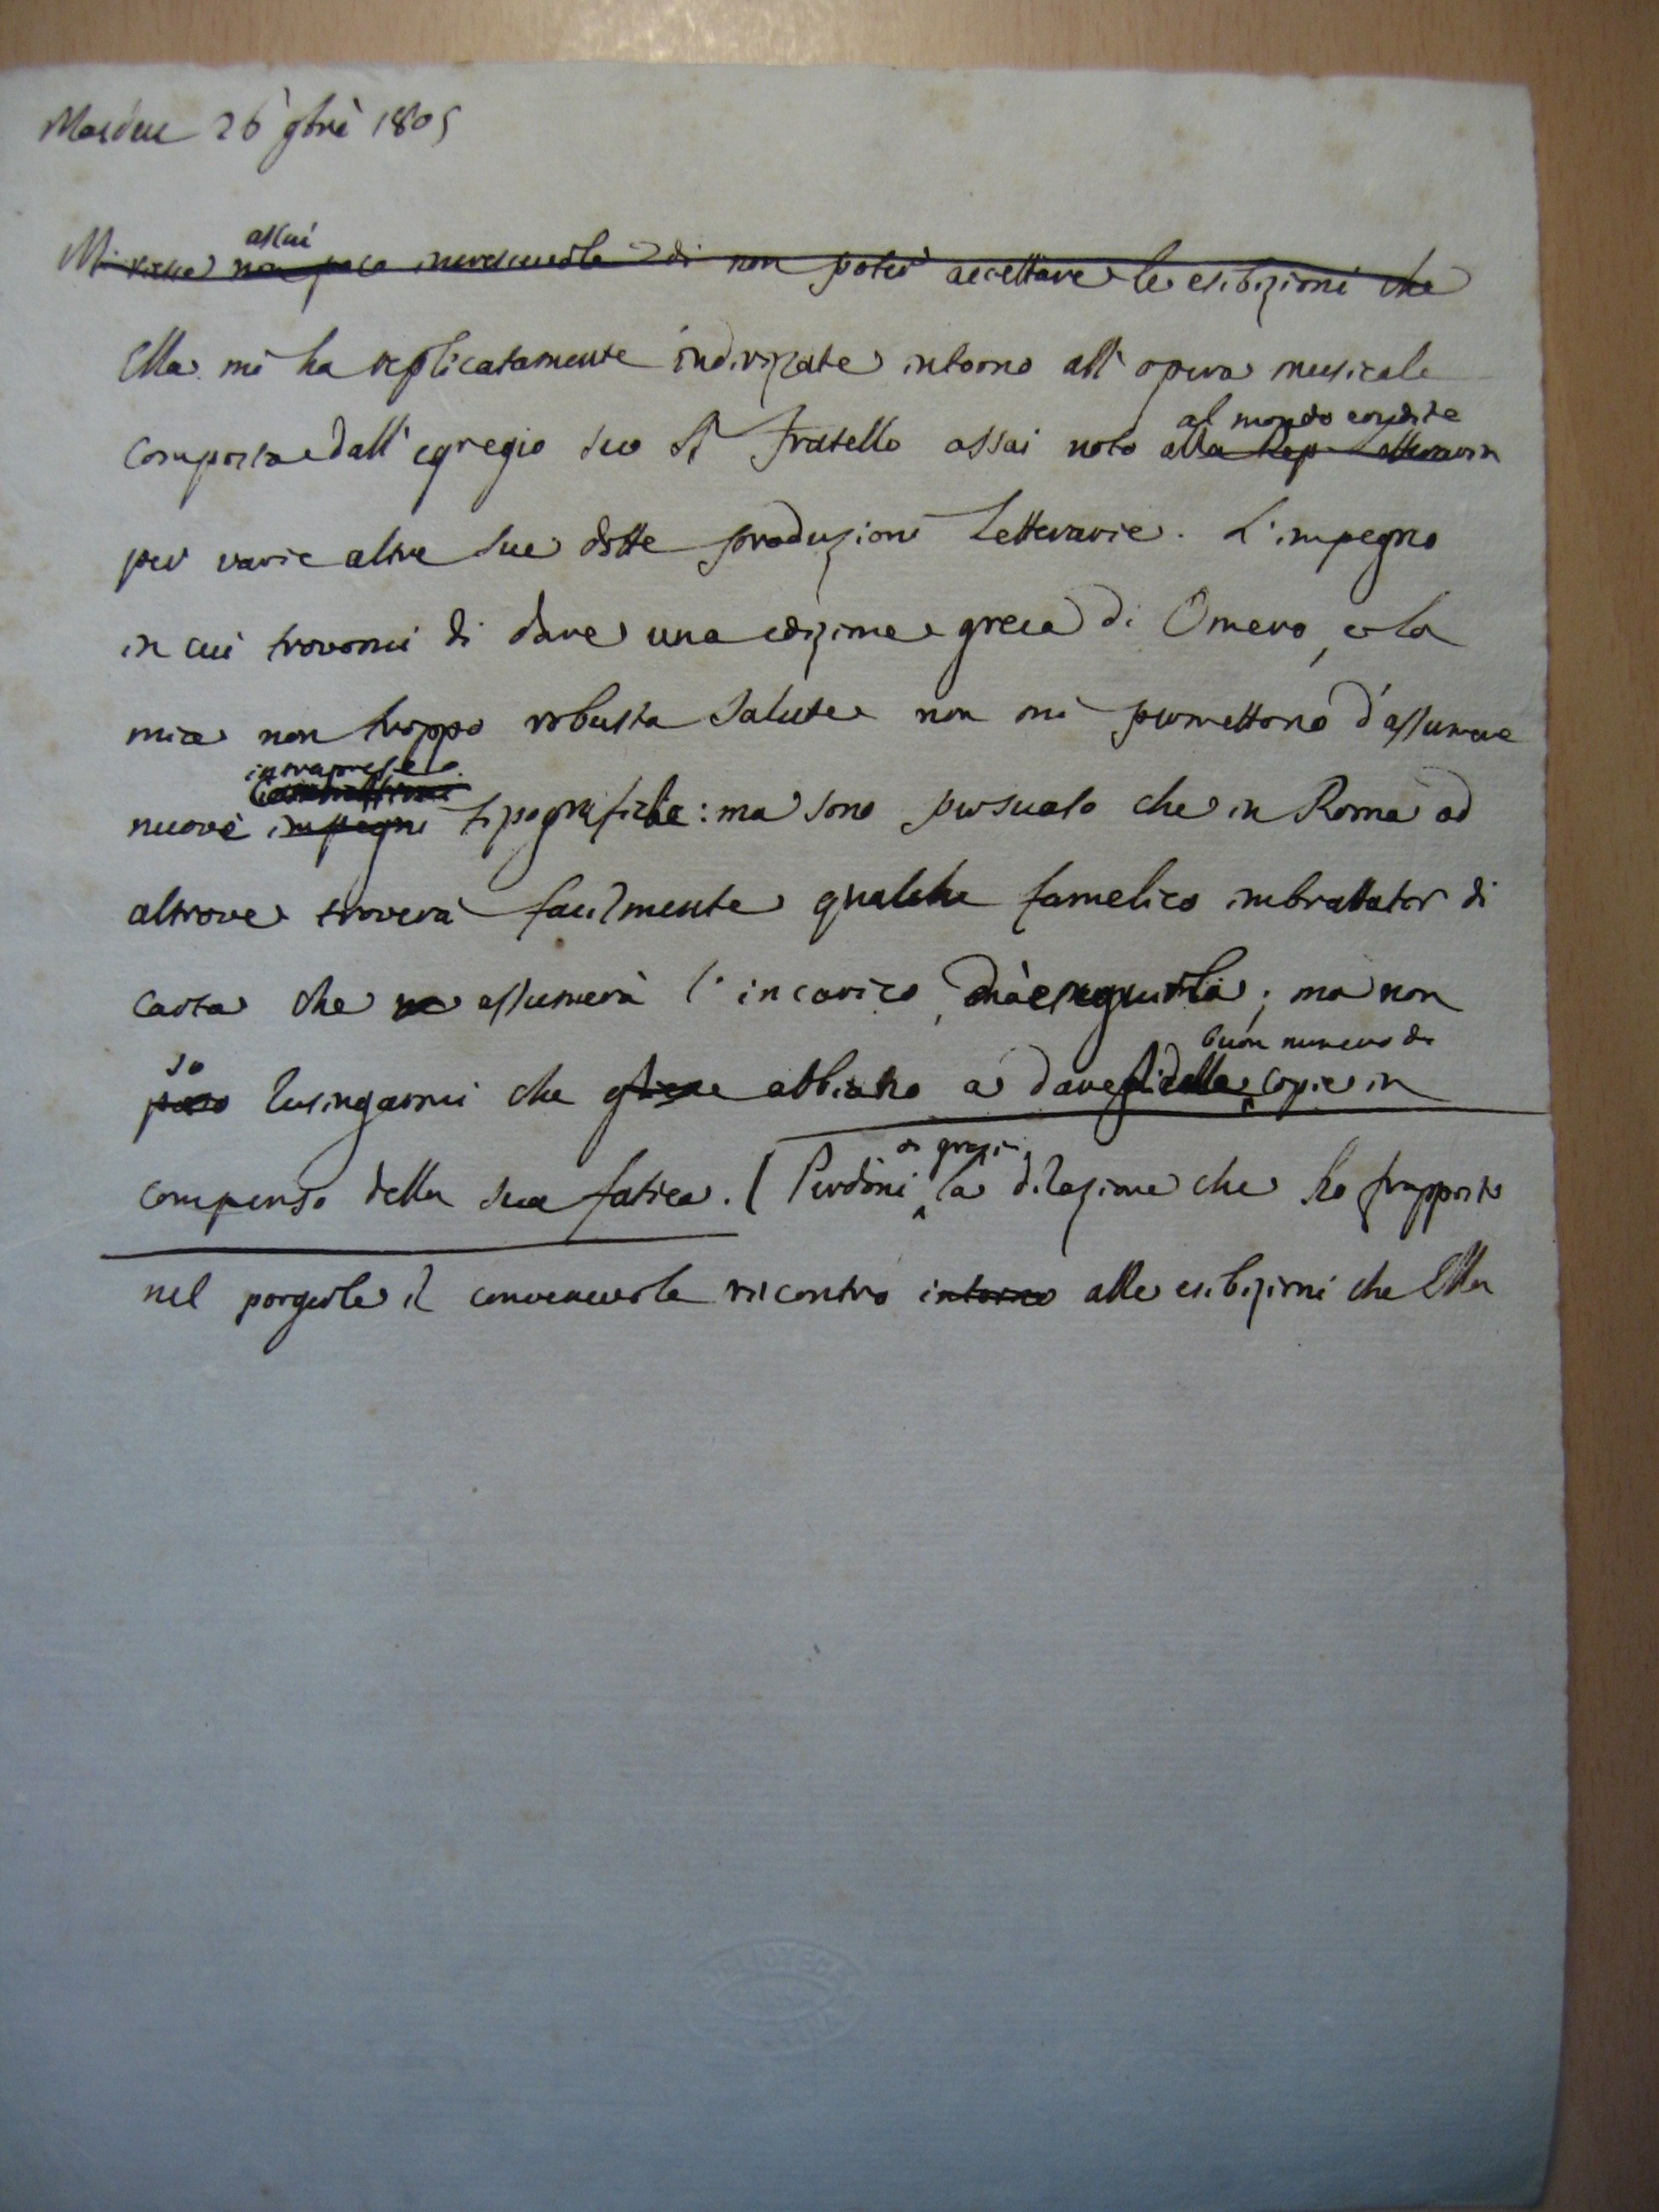 26 9bre 1805
assai
Mi non poco increscevole di non poter accettare le esibizioni che
Ella mi ha replicatamente indirizzate intorno all' opera musicale
al mondo erudito
composta dall' egregio suo Sr Fratello assai noto alla Rep. letteraria
per varie altre sue dotte produzioni Letterarie. L'impegno
in cui trovomi di dare una edizione greca di Omero, e la
mia non troppo robusta salute non mi permettono d'assumere
intraprese
nuove impegni tipografiche: ma sono persuaso che in Roma od
altrove troverà facilmente qualche famelico imbrattator di
carta che ne assumerà l'incarico, ma non
buon numero di
so
posso lusingarmi che abbiano a dare copie in
di grazia
compenso della sua fatica. ( Perdoni la dilazione che ho frapposta
nel porgerle il convenevole riscontro intorno alle esibizioni che Ella